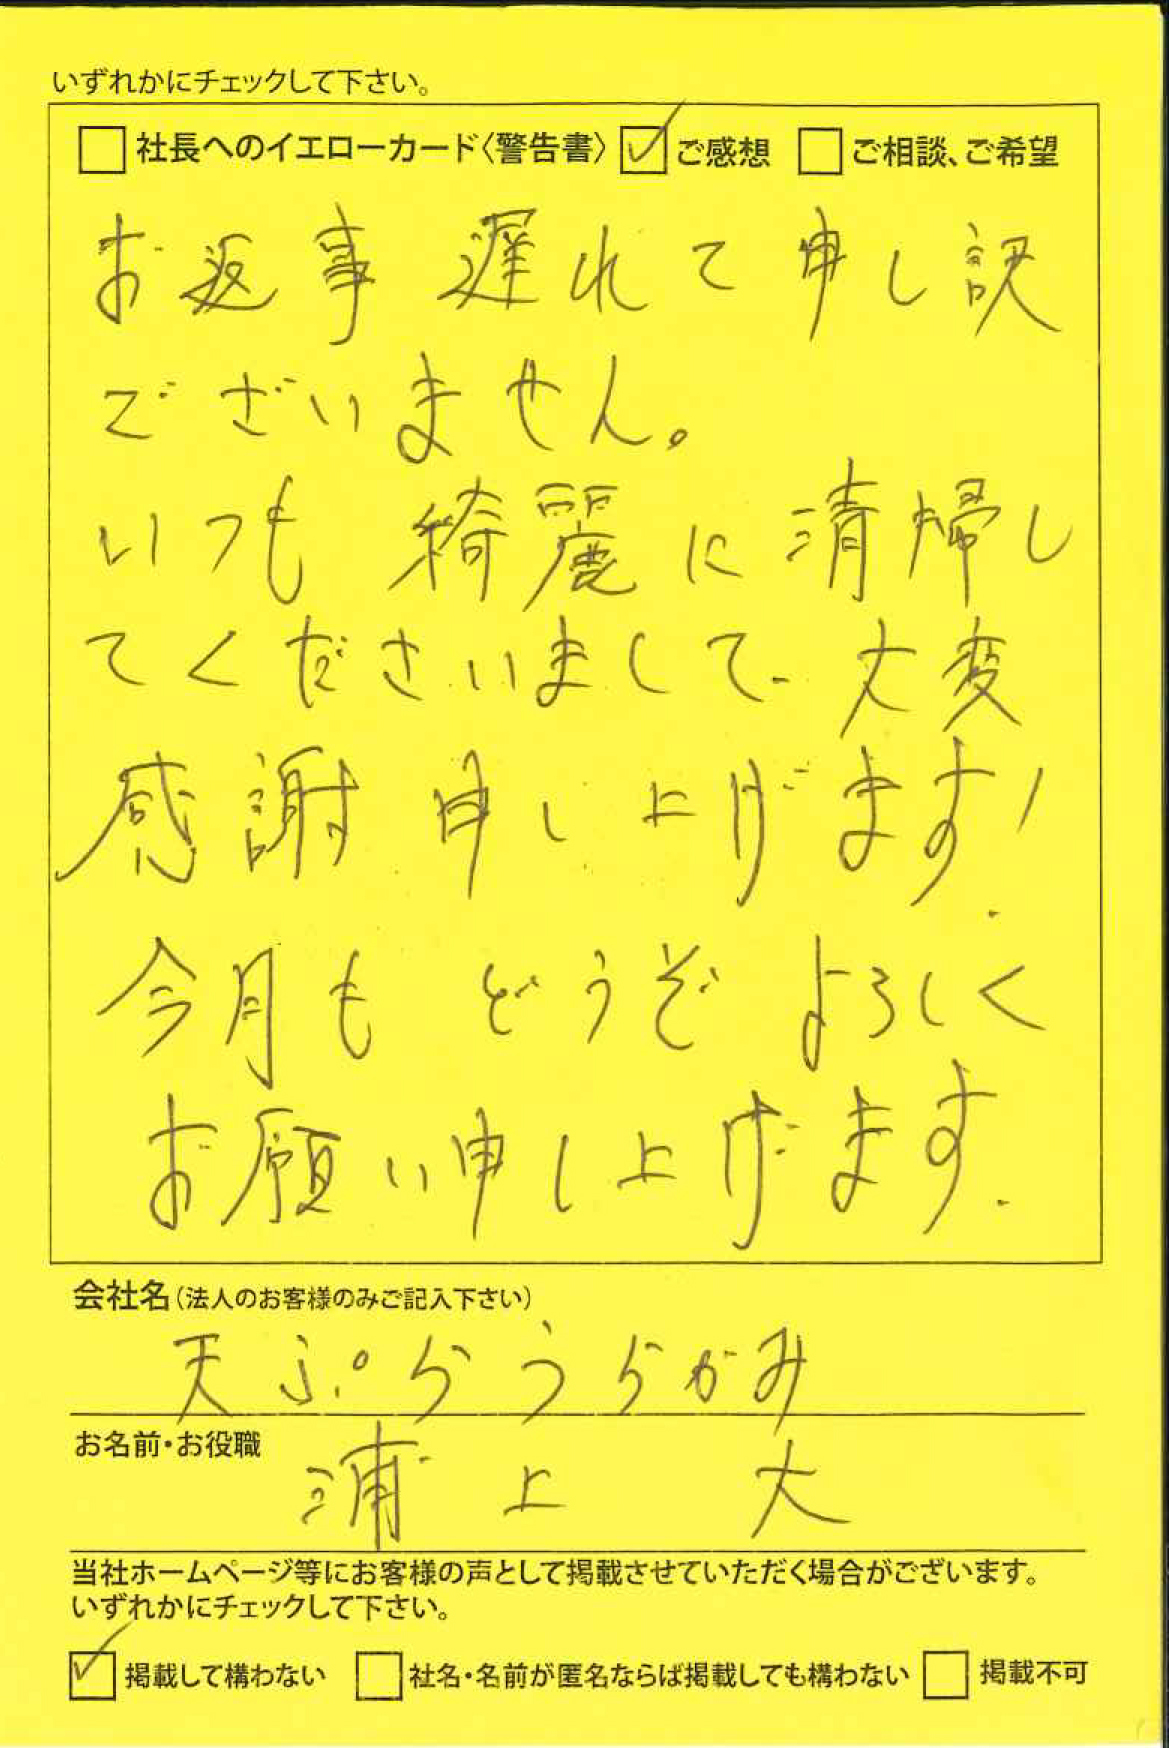 いずれかにチェックして下さい。
□ 社長へのイエローカード〈警告書〉 ☑ ご感想 □ ご相談、ご希望
お返事 遅れて 申し訳
ございません。
いつも 綺麗に 清掃し
てくださいまして、大変
感謝 申し上げます!
今月も どうぞ よろしく
お願い申し上げます.
会社名(法人のお客様のみご記入下さい)
天ぷらうらかみ
お名前・お役職
浦上 大
当社ホームページ等にお客様の声として掲載させていただく場合がございます。
いずれかにチェックして下さい。
☑ 掲載して構わない □ 社名・名前が匿名ならば掲載しても構わない □ 掲載不可